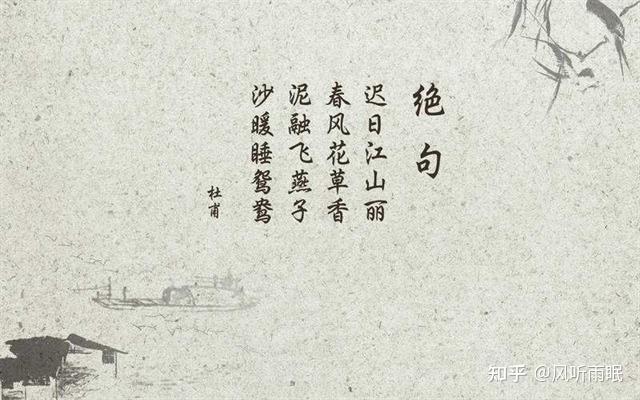 绝句
迟日江山丽
春风花草香
泥融飞燕子
沙暖睡鸳鸯
杜甫
知乎 @风听雨眠